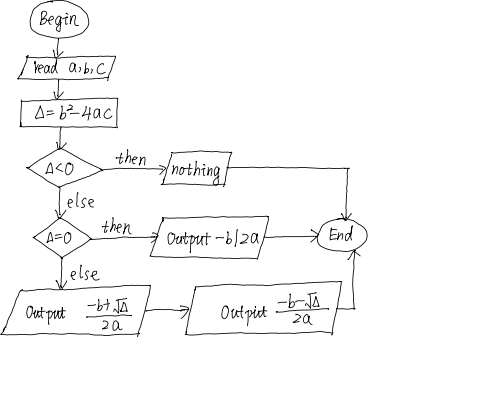 Begin
read a,b,c
Δ=b²-4ac
Δ<0
then
nothing
else
Δ=0
then
Output -b/2a
End
else
Output (-b+√Δ)/2a
Outpit (-b-√Δ)/2a